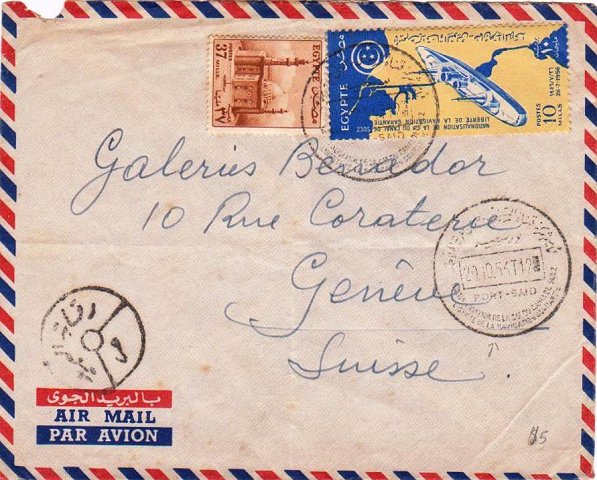 POSTES 37 MILLS
EGYPT
مصر
NATIONALISATION DE LA CIE DU CANAL DE SUEZ
LIBERTE DE LA NAVIGATION GARANTIE
EGYPTE
مصر
26-7-1956
POSTES 10 MILLS
Galeries Benador
10 Rue Coraterie
Genève
Suisse
20.10.56.T12
PORT-SAID
بالبريد الجوى
AIR MAIL
PAR AVION